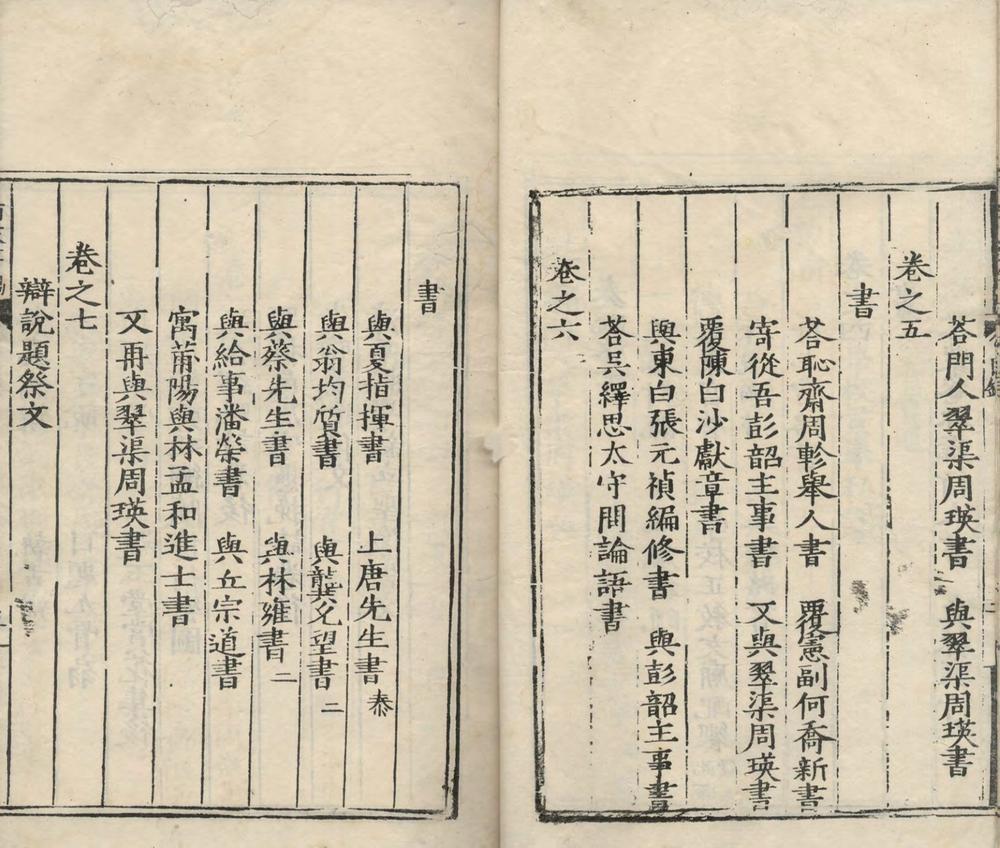 荅門人翠渠周瑛書　與翠渠周瑛書
卷之五
書
荅恥齋周軫舉人書　覆憲副何喬新書
寄從吾彭韶主事書　又與翠渠周瑛書
覆陳白沙獻章書
與東白張元禎編修書　與彭韶主事書
荅吳繹思太守問論語書
卷之六
書
與夏指揮書　上唐先生書
與翁均質書　與龔允望書 二
與蔡先生書　與林雍書 二
與給事潘榮書　與丘宗道書
寓莆陽與林孟和進士書
又再與翠渠周瑛書
卷之七
辯說題祭文